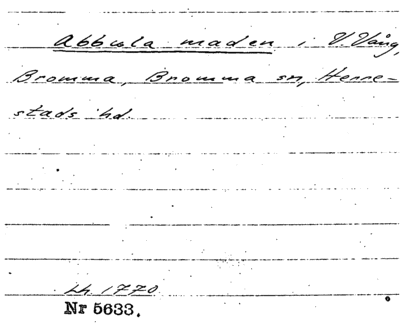 Abbula maden i V. Vång,
Bromma, Bromma sn, Herre-
stads hd.
Lh. 1770.
Nr 5633.